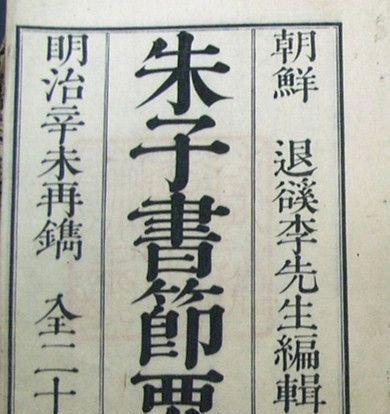 朝鮮 退谿李先生編輯
朱子書節要
明治辛未再鐫 全二十